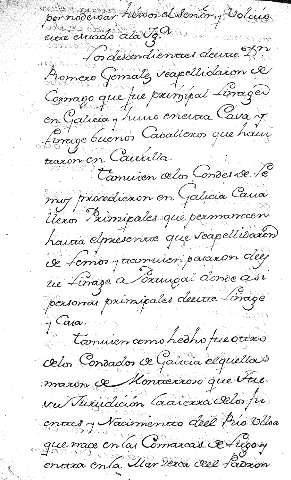 por no dexar hixos el señor, y Volvio
aver ciuado ala
Los desendientes deeste
Romero Gomalz se apellidaron de
Cornago que fue prinzipal Linage
en Galicia y huvo en esta Cassa, y
Linage buenos Cavalleros que havi
taron en Castilla.
Tamvien de los Condes de Le
mos prosedieron en Galicia Cava
lleros Prinzipales que permanecen
hasta el presente que se apellidaron
de Lemos y tamvien pasaron de
su Linage a Portugal donde ai
personas prinzipales deeste Linage
y Casa.
Tamvien como hedho fue ottro
de los Condados de Galicia el que lla
maron de Monterroso que tiene
su Jurisdición la tierra de los fu
entes y Nacimiento del Rio Ulloa
que naze en las Comarcas de Lugo y
entra en la Mar zerca del Padron